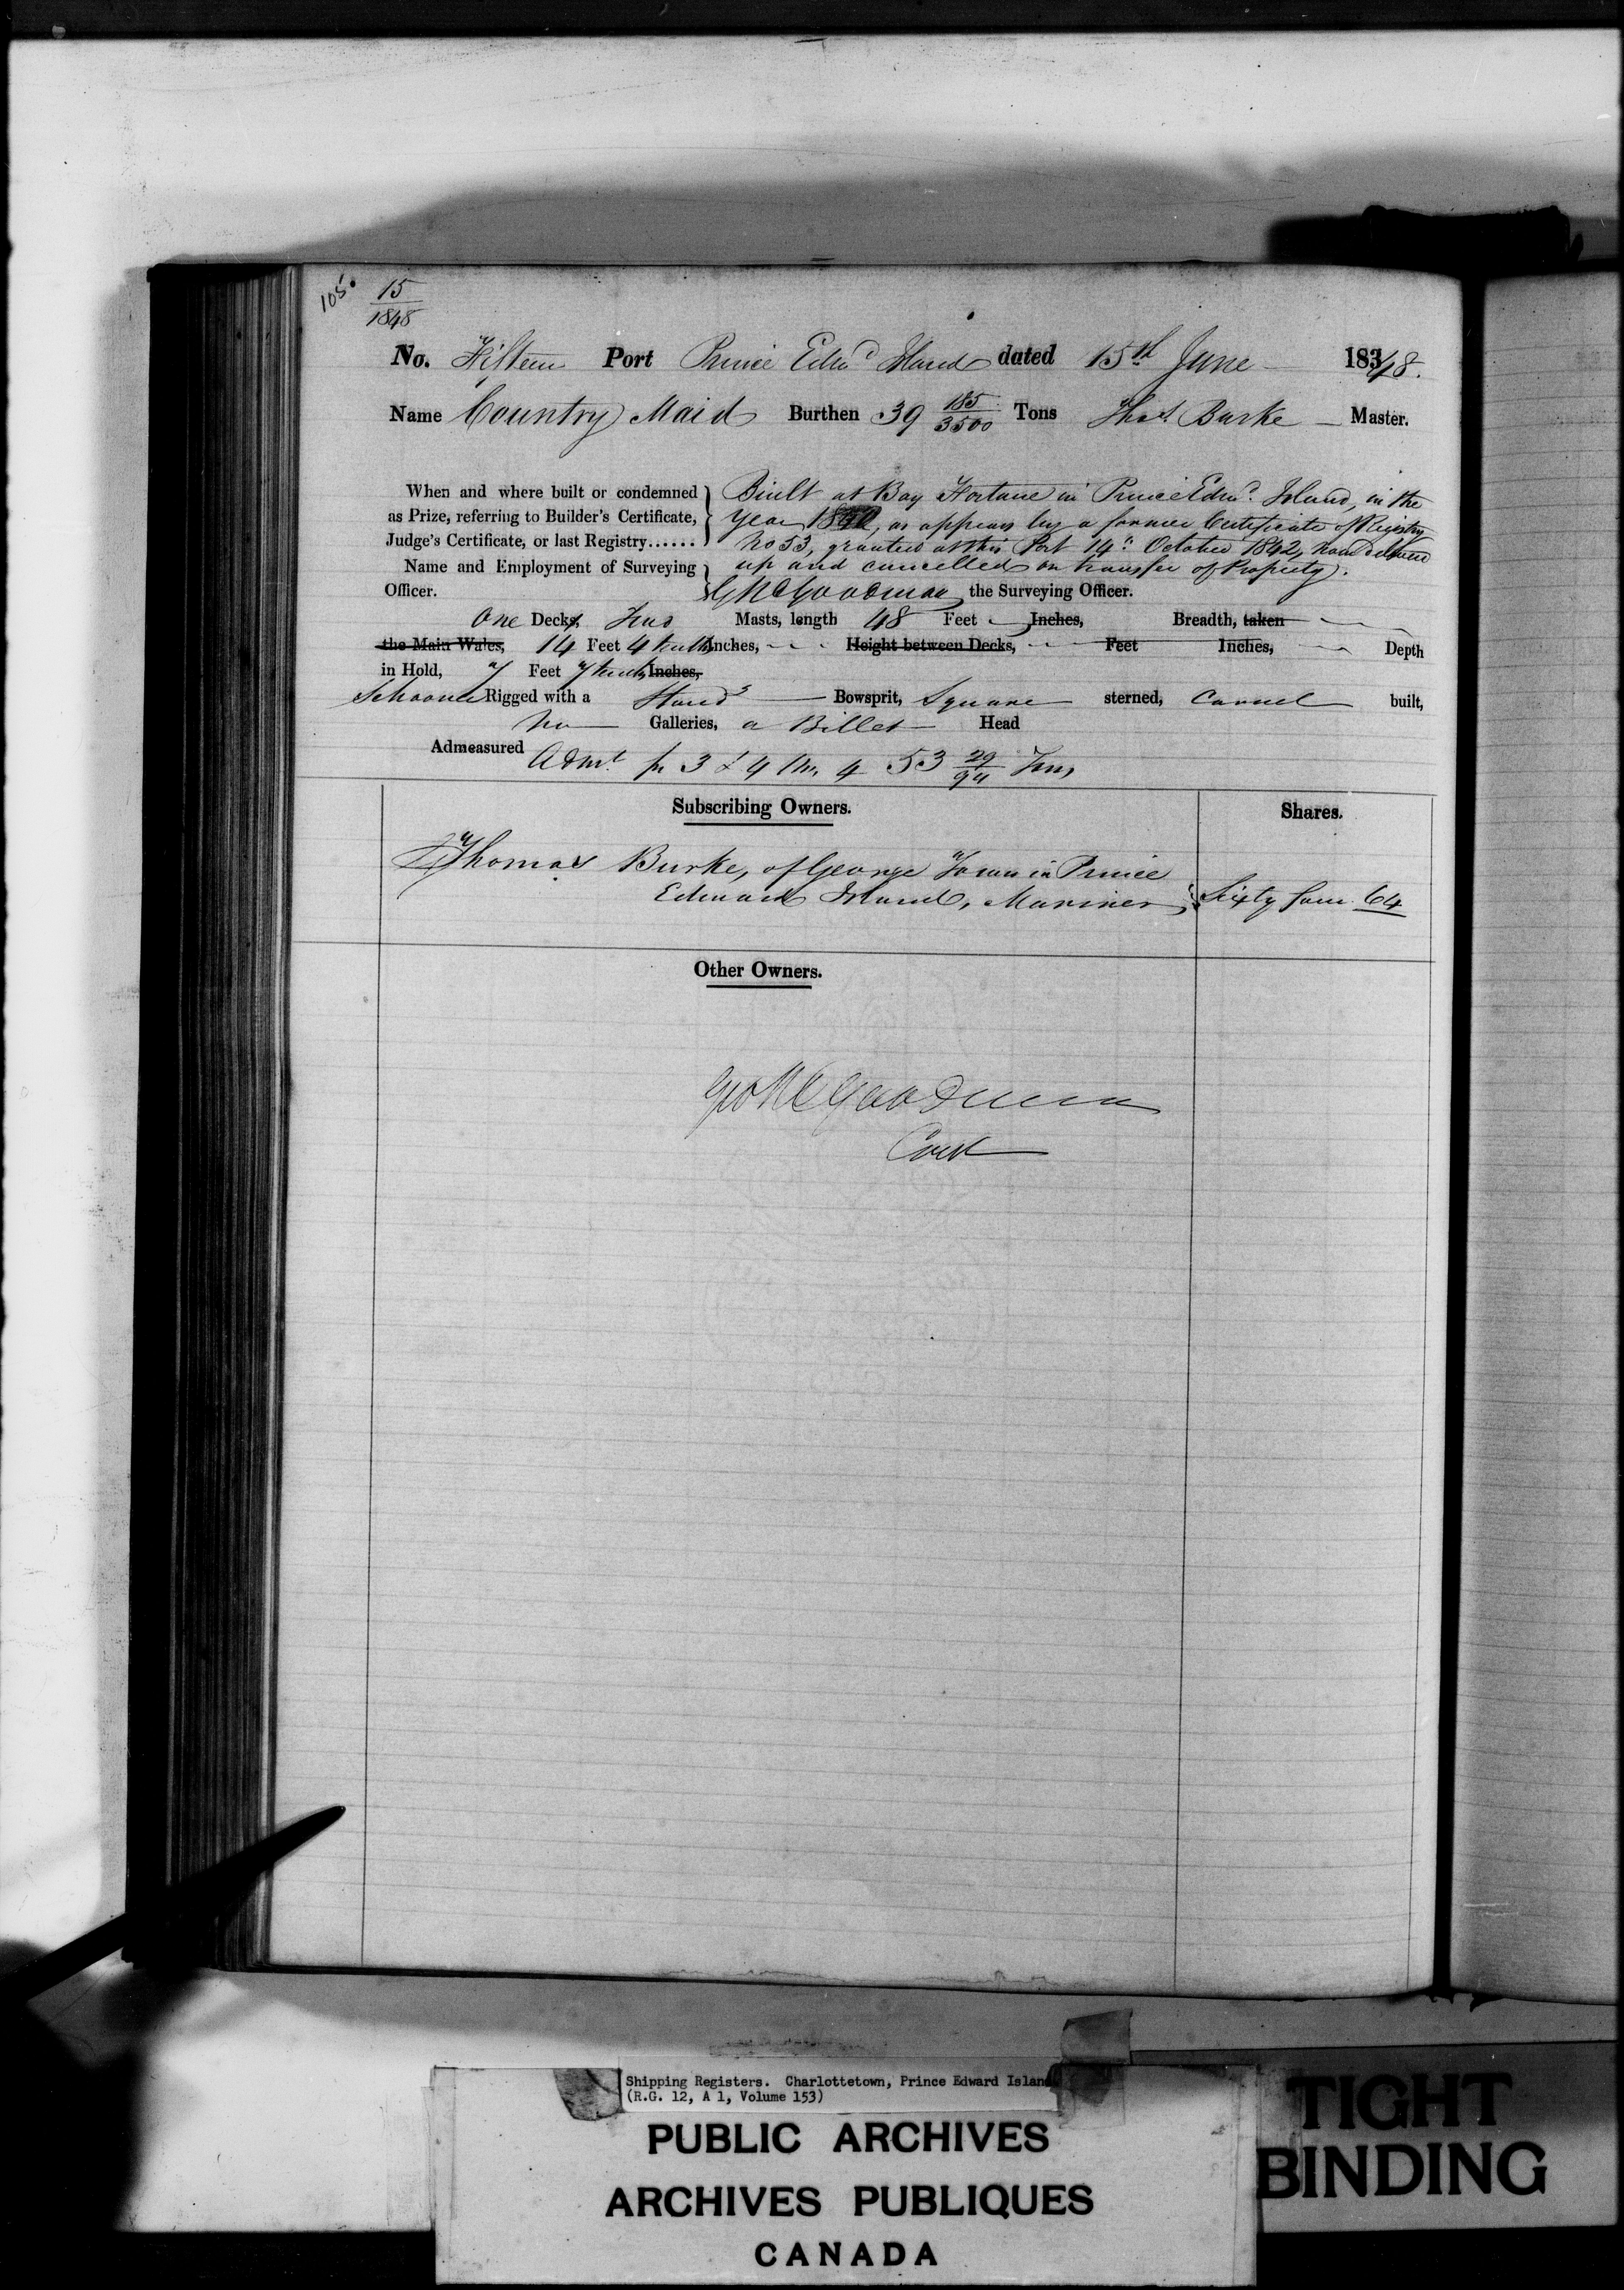 105.
15
1848
No. Fifteen Port Prince Edwd Island dated 15th June 1848.
Name Country Maid Burthen 39 185/3500 Tons Thos. Burke Master.
When and where built or condemned Built at Bay Fortune in Prince Edwd. Island, in the
as Prize, referring to Builder's Certificate, Year, as appears by a former Certificate of Registry
Judge's Certificate, or last Registry...... No 53, granted at this Port 14th October 1842, now delivered
Name and Employment of Surveying up and cancelled on transfer of Property.
Officer. Goodman the Surveying Officer.
One Decks, Two Masts, length 48 Feet Inches, Breadth, taken
the Main Wales, 14 Feet 4 tenths Inches, Height between Decks, Feet Inches, Depth
in Hold, 7 Feet 7 tenths Inches,
Schooner Rigged with a Stand'g Bowsprit, Square sterned, Carvel built,
No Galleries, a Billet Head
Admeasured Admt. pr 3 & 4 Wm. 4 53 29/94 Tons
Subscribing Owners. Shares.
Thomas Burke, of George Town in Prince
Edward Island, Mariner, Sixty four 64
Other Owners.
Goodman
Shipping Registers. Charlottetown, Prince Edward Island
(R.G. 12, A 1, Volume 153)
PUBLIC ARCHIVES
ARCHIVES PUBLIQUES
CANADA
TIGHT
BINDING